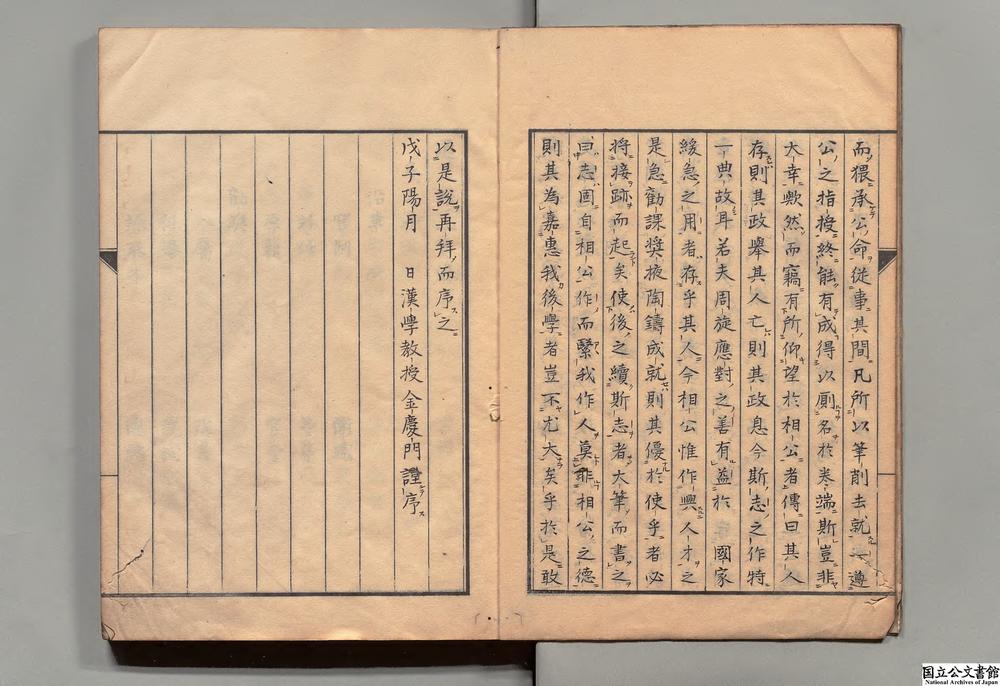 而猥承公命從事其間凡所以筆削去就一遵
公之指授終能有成得以厠名於卷端斯豈非
大幸歟然而竊有所仰望於相公者傳曰其人
存則其政擧其人亡則其政息今斯志之作特
一典故耳若夫周旋應對之善有益於 國家
緩急之用者存乎其人今相公惟作興人才之
是急勸課奬掖陶鑄成就則其優於使乎者必
將接跡而起矣使後之續斯志者大筆而書之
曰志固自相公作而繄我作人莫非相公之德
則其為嘉惠我後學者豈不尤大矣乎於是敢
以是說再拜而序之
戊子陽月 日漢學教授金慶門謹序
国立公文書館
National Archives of Japan